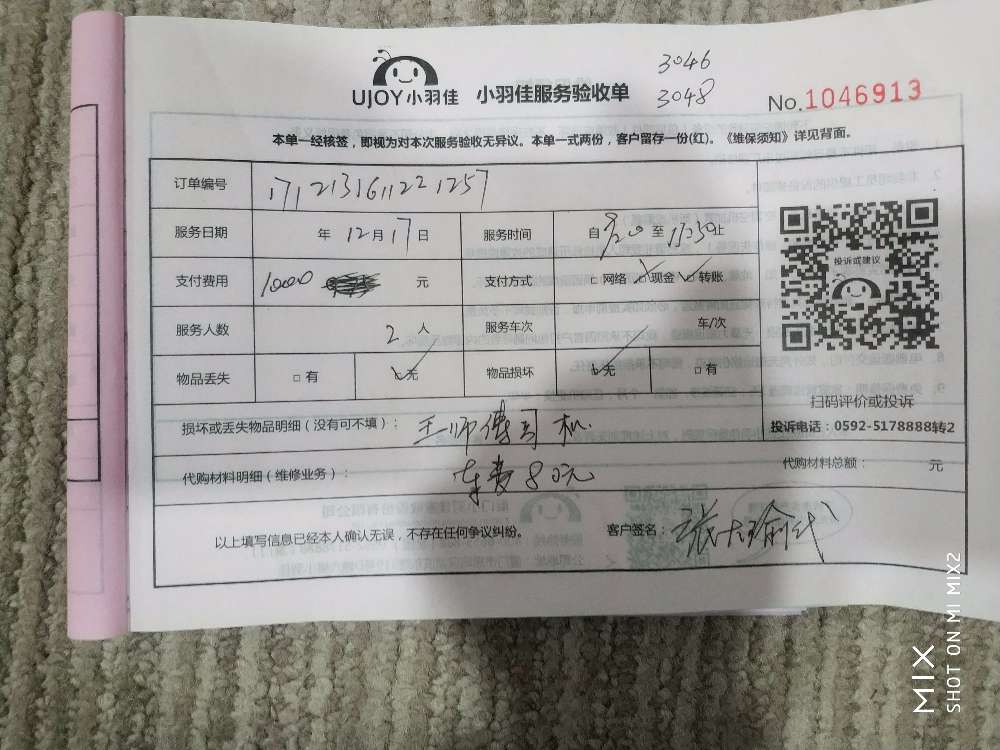 3046
UJOY小羽佳 小羽佳服务验收单
3048
No.1046913
本单一经核签，即视为对本次服务验收无异议。本单一式两份，客户留存一份(红)。《维保须知》详见背面。
订单编号 171213161122 1257
服务日期 年 12月17日 服务时间 自 9:20 至 17:30止
支付费用 1000 元 支付方式 □ 网络 □ 现金 □ 转账
服务人数 2 人 服务车次 车/次
物品丢失 □ 有 □ 无 物品损坏 □ 无 □ 有
投诉或建议
扫码评价或投诉
投诉电话：0592-5178888转2
损坏或丢失物品明细（没有可不填）： 王师傅司机.
代购材料明细（维修业务）： 车费80元
代购材料总额： 元
以上填写信息已经本人确认无误，不存在任何争议纠纷。 客户签名：
MIX
SHOT ON MI MIX2